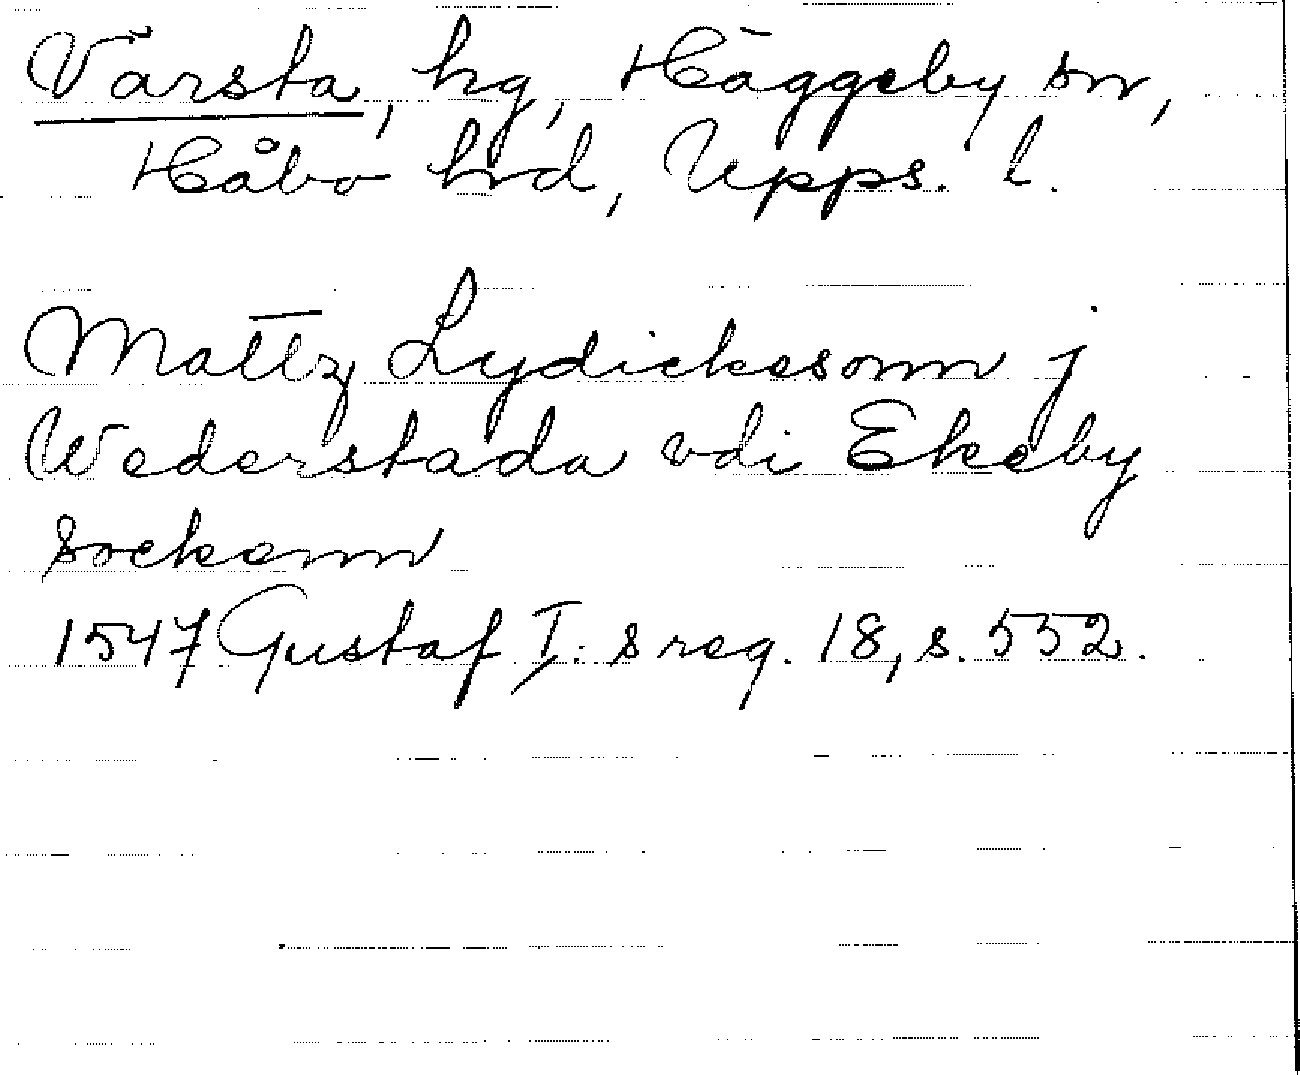 Värsta, hg, Häggeby sn,
Håbo hrd, Upps. l.
Mattz Lydickesonn j
Wederstada vdi Ekeby
sockenn
1547 Gustaf I:s reg. 18, s. 552.